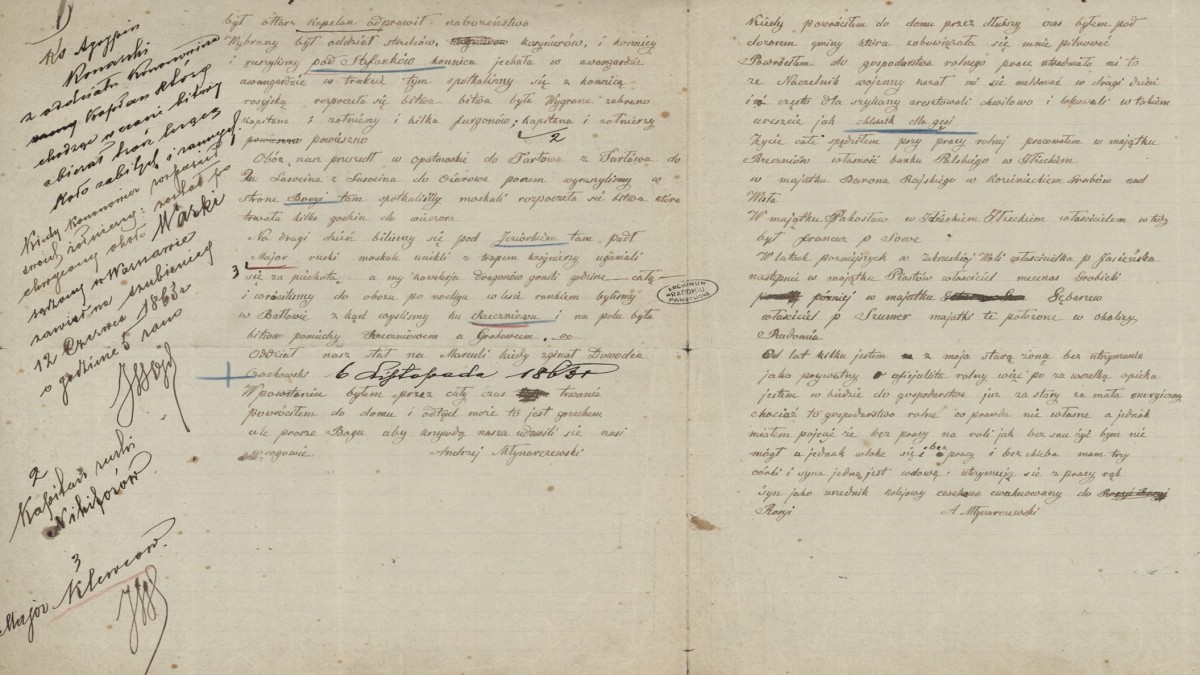 1)
Ks Agrypin
Konarski
z oddziału Kononowicza
Kapelan który
chodząc w czasie bitwy
zbierał broń leżącą
koło zabitych i rannych
Kiedy Kononowicz rozpuścił
swoich żołnierzy: został po
chwycony około Warki
sądzony w Warszawie
zawisł na szubienicy
12 Czerwca 1863 r
o godzinie 5 rano
2
Kapitan ruski
Nikiforów
3
Major Klewców.
był ołtarz Kapelan odprawił nabożeństwo
Wybrany był oddział strzelców, kosynierów, i konnicy
i ruszyliśmy pod Stefanków konnica jechała w awangardzie
awangardzie w trakcie tym spotkaliśmy się z konnicą
rosyjską rozpoczeło się bitwa bitwa była Wygrana zabrano
kapitana i żołnierzy i kilka furgonów; kapitana i żołnierzy
powieszno
2
Obóz nasz przeszedł w opatowskie do Tarłowa z Tarłowa do
Lasocina z Lasocina do Ożarowa poczem wyruszyliśmy w
strone Boryi tam spotkaliśmy moskali rozpoczeła się bitwa która
trwała kilka godzin do wieczora
Na drugi dzień biliśmy się pod Jeziorkiem tam padł
Major ruski moskale uciekli z trzepem kosynierzy uganiali
3
się za piechotą a my kawalerja Dragonów gonili godzine całą
i wróciliśmy do obozu po noclegu w lesie rankiem byliśmy
w Bałtowie z kąd wyszliśmy ku Rzeczniowu i na polu była
bitwa pomiędzy Rzeczniowem a Grabowcem
Oddział nasz stał na Maruszi kiedy zginął Dowodca
Czachowski 6 Listopada 1863 r
W powstaniu byłem przez cały czas trwania
powróciłem do domu i odtąd może to jest grzechem
ale prosze Bogu aby krzywdą nasza udawili się nasi
wrogowie Andrzej Młynarczewski
ARCHIWUM RADOMIU PAŃSTWOWE
Kiedy powróciłem do domu przez dłuższy czas byłem pod
dozorem gminy która zobowiązała się mnie pilnować
Powróciłem do gospodarstwa rolnego pracę utrudniało mi to
że Naczelnik wojenny kazał mi się meldować co drugi dzień
i często dla szykany aresztowali chwilowo i lokowali w takiem
areszcie jak chlewik dla gęsi
Życie całe spędziłem przy pracy rolnej pracowałem w majątku
Brzezniów własność banku Polskiego w Iłżeckiem
w majątku Barona Rajskiego w Kozienieckiem Grabów nad
Wisłą
W majątku Pakosław w Iłżeckiem właścicielem wtedy
był francuz p Lowe
W latach pozniejszych w Zakrzskiej Woli właścicielka p Jasieńska
następnie w majątku Piastów właściciel mecenas Grobicki
pozniej w majątku Gębarzew
właściciel p Szumer majątki te położone w okolicy
Radomia
Od lat kilku jestem z moją starą żoną bez utrzymania
jako prywatny oficjalista rolny więc po za wszelką opieką
jestem w biedzie do gospodarstwa już za stary za mało energiczny
chociaż to gospodarstwo rolne co prawda nie własne a jednak
miałem pojęcie że bez pracy na roli jak bez snu żyć bym nie
mógł a jednak wlokę się i bez pracy i bez chleba mam trzy
córki i syna jedna jest wdową utrzymują się z pracy rąk
Syn jako urzednik kolejowy ewakuowany do
Rosji A Młynarczewski